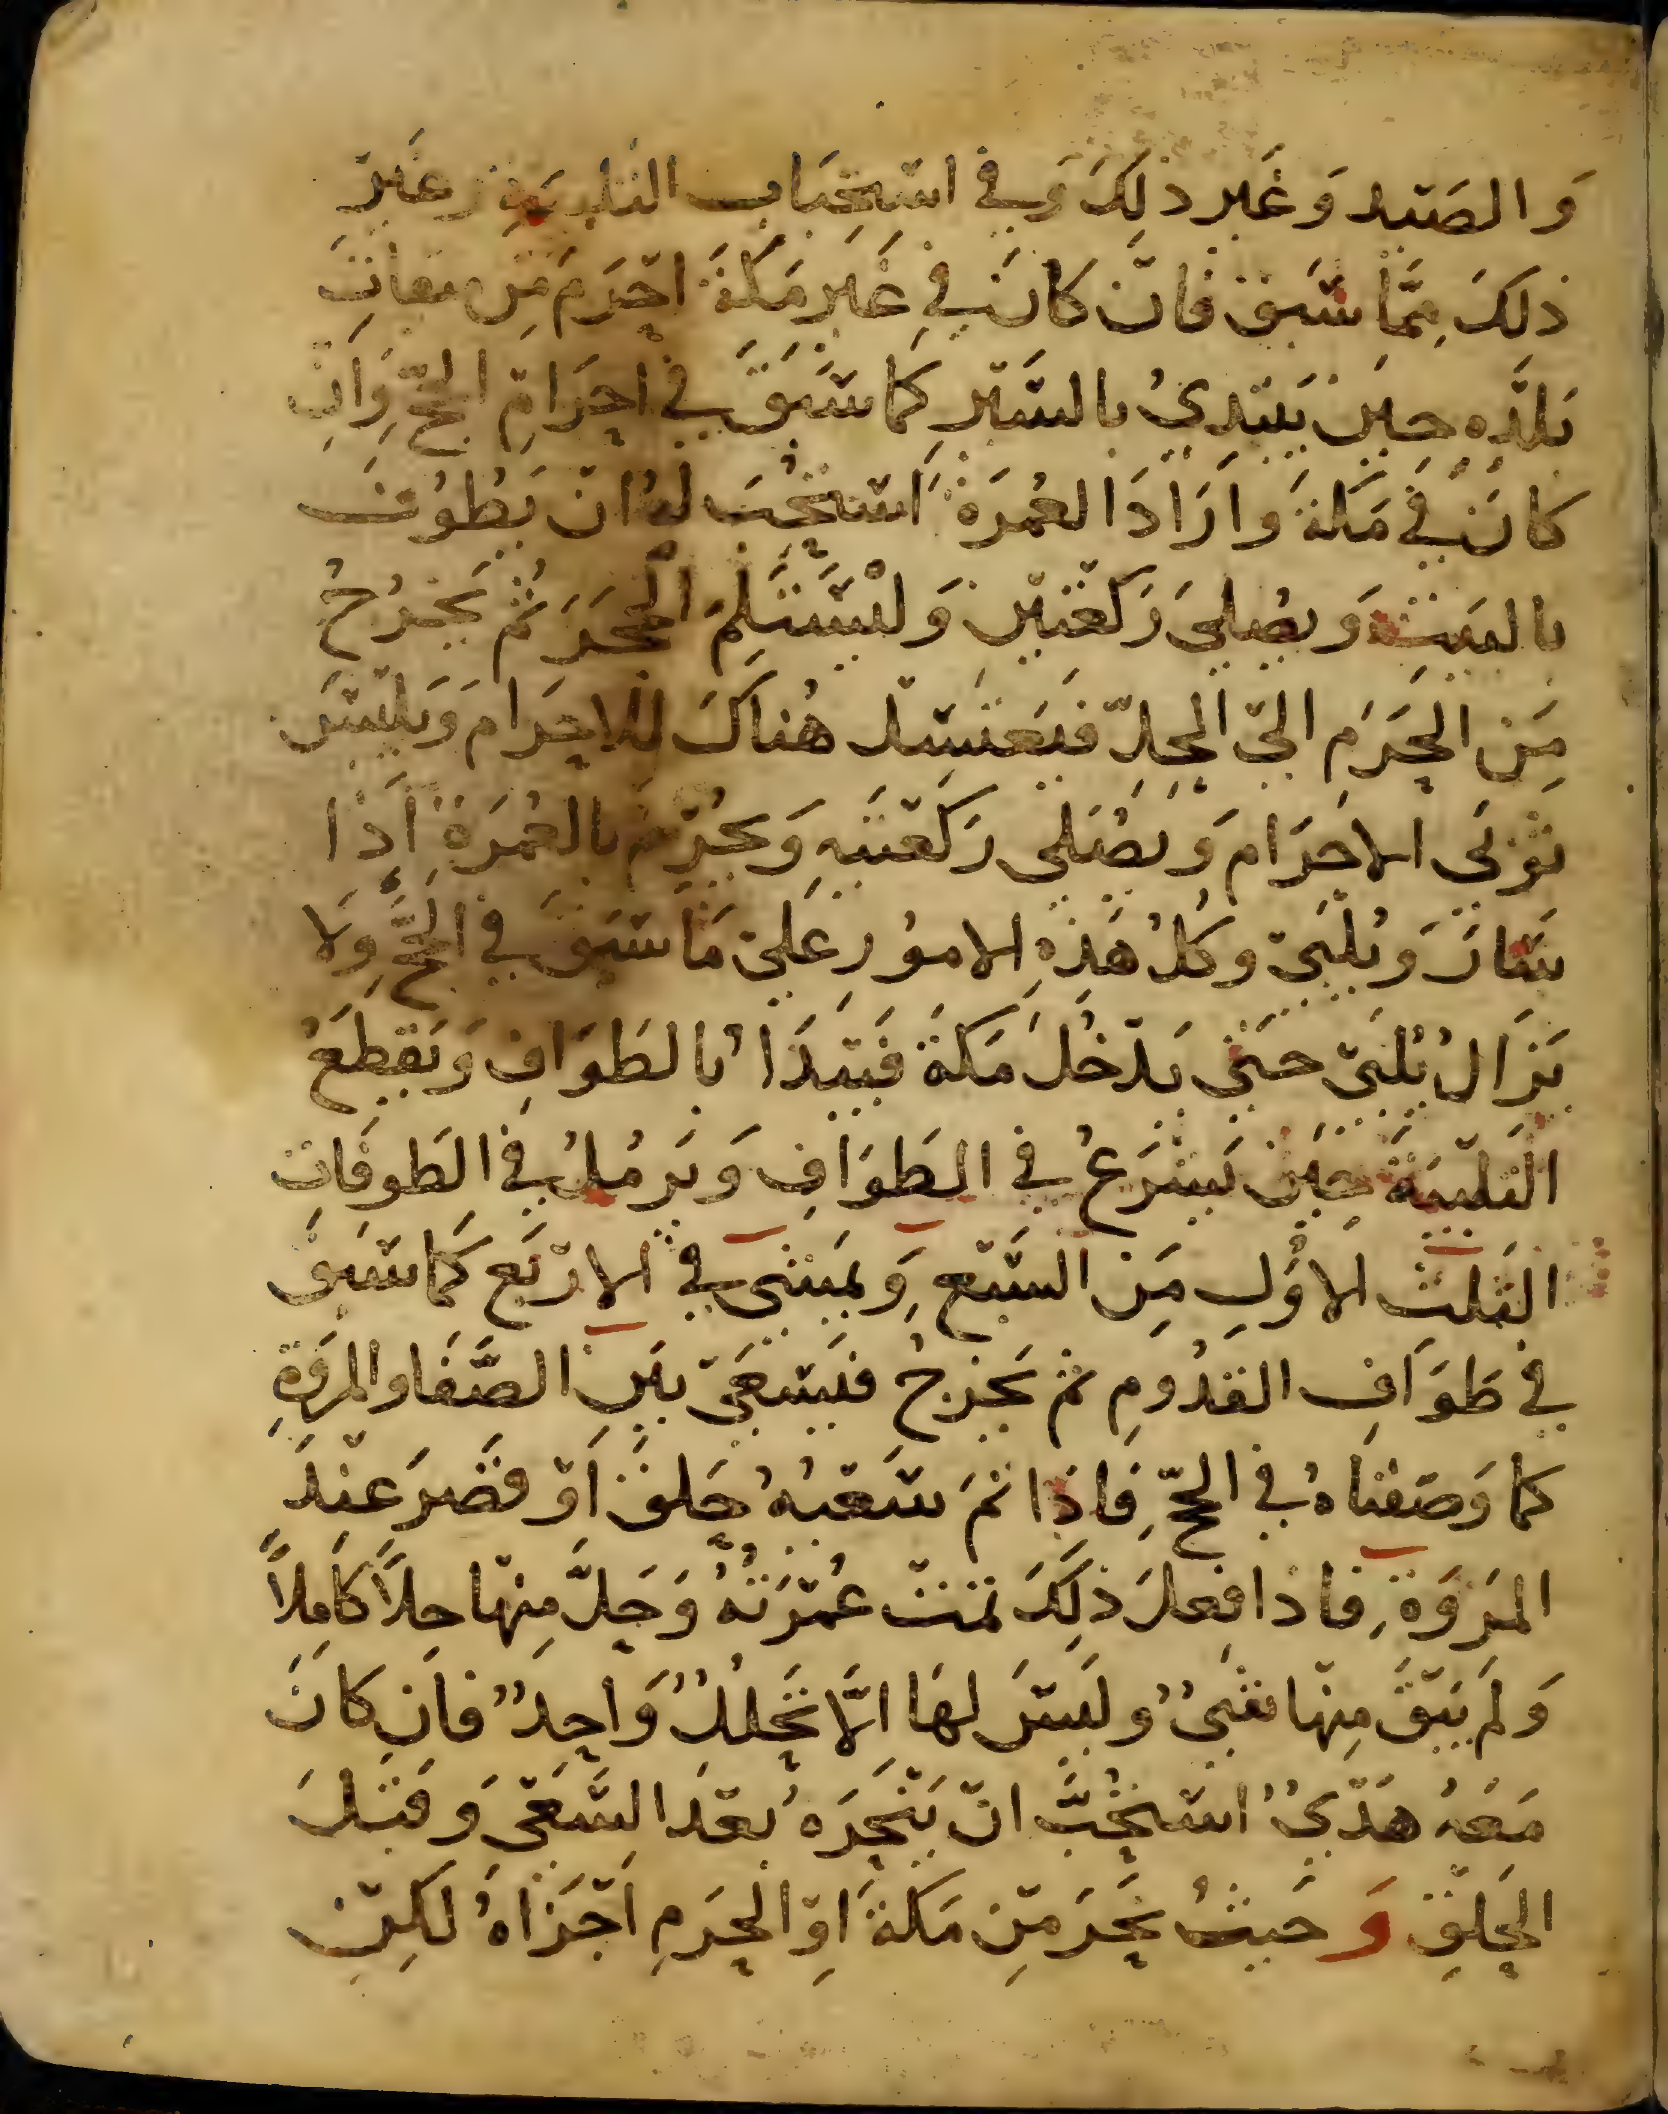 وَالصَيد وَغَير ذلِكَ وَفي استِحبَاب التلبيَةِ وغَير
ذلكَ مِمَّا سَبَق فَان كَانَ في غَير مَكَةَ احرَمَ مِن ميقاتِ
بَلَدِه حِينَ يَبتدِيُ بالسَيرِ كَما سَبَقَ في احِرَامِ الحَجّ وَانِ
كانَ في مَكةَ وارَادَ العُمرَةَ استحُبَ لهُ ان يَطوُفَ
بالبَيتِ وَيصُليَ رَكعَتينِ وَليَستَلِمَ الحَجَرَ ثُم يَخرُجُ
مِنَ الحَرَمِ اليَ الحِلّ فيَغتسِل هُناكَ للاحِرَام وَيَلبسَ
ثوبَي الاحرَام وَيصُلي رَكعَتيهِ وَيحُرِمُ بالعُمرَةِ اذا
سَارَ وَيُلبَي وكلُ هَذهِ الاموُر عَليَ مَا سَبَقَ في الحَجّ وَلا
يَزَالُ يُلبَي حَتي يَدخُلَ مَكةَ فَيَبدَاُ بالطَوَافِ وَيَقطَعُ
التَلبيَة حِينَ يَشرَعُ في الطَوَافِ وَيَرمُلُ في الطَوفَاتِ
الثَلث الاوُلِ مِنَ السَبع وَيمَشي في الاربَع كَما سَبَق
في طَوَافِ القدُومِ ثم يَخرجُ فيَسعَي بَينِ الصَفَا والمروَةِ
كما وَصَفنَاهُ في الحَجّ فَاذا تمَ سَعيُهُ حَلقَ اَو قصَرَ عِندَ
المَروَةِ فاذا فعلَ ذلِكَ تمت عُمرَتُهُ وَحَلَّ مِنها حِلاً كَامِلاً
وَلم يَبقَ مِنها شيٌ وليسَ لهَا الَّا تحَللٌ وَاحِدٌ فان كانَ
مَعَهُ هَديٌ استحُبَّ ان يَنحَرَهُ بَعدَ السَعيَ وَقبلَ
الحَلقِ وَحَيثُ نحَرَ مِن مَكةَ اوِ الحَرَمِ اَجزَاهُ لكِن